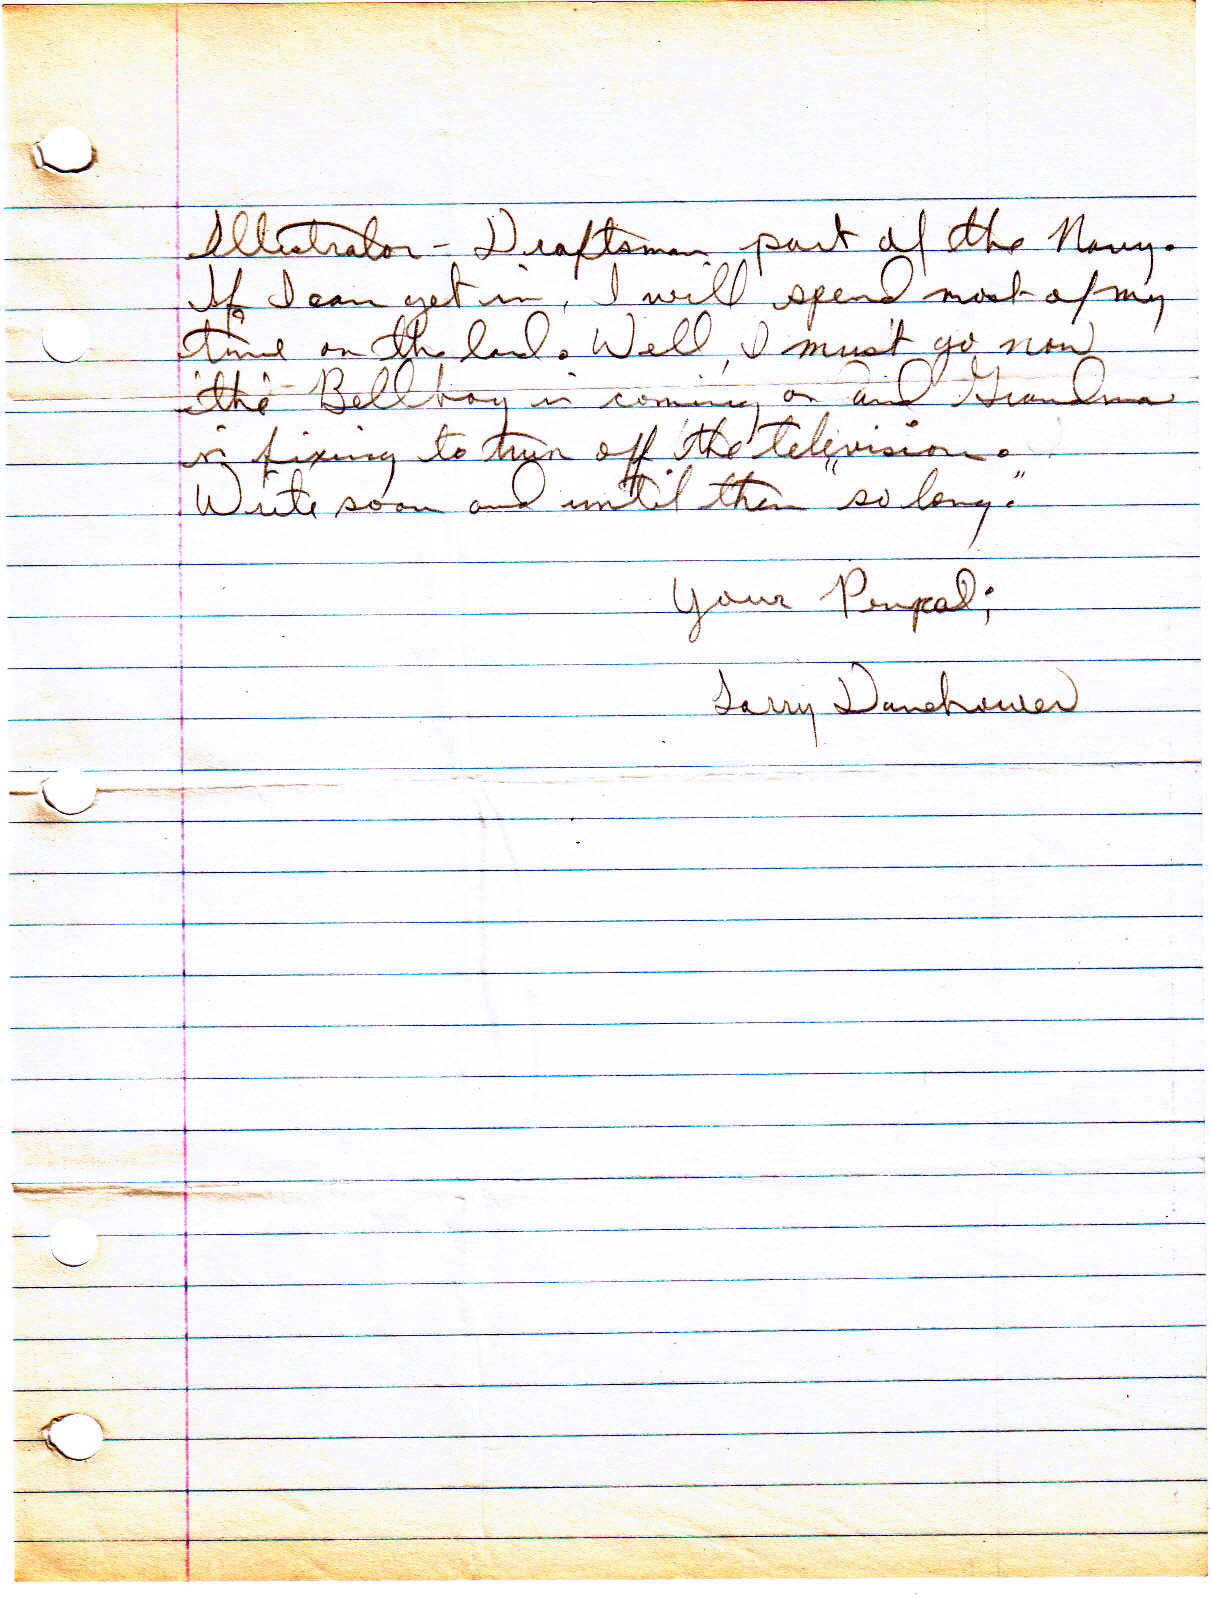 Illustrator - Draftsman part of the Navy.
If I can get in, I will spend most of my
time on the land. Well, I must go now
"the" Bellboy is coming on and Grandma
is fixing to turn off the television.
Write soon and until then "so long."
Your Penpal;
Larry Danehower